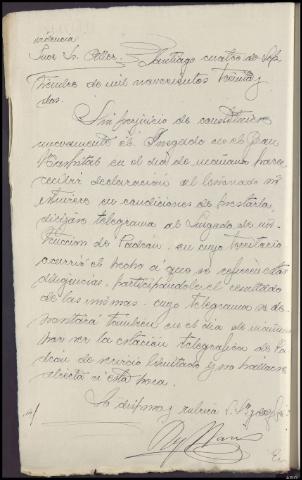 Providencia
Juez Sr. Oller. Santiago cuatro de Sep
tiembre de mil novecientos treinta y
dos.
Sin perjuicio de constituirse
nuevamente el Juzgado en el Gran
Hospital en el dia de mañana para
recibir declaracion al lesionado si
estuviere en condiciones de prestarla,
dirijase telegrama al Juzgado de ins
truccion de Padron, en cuyo territorio
ocurrió el hecho a que se refieren estas
diligencias, participandole el resultado
de las mismas. cuyo telegrama se de
positará tambien en el dia de mañana
por ser la estacion telegrafica de Pa
dron de servicio limitado y no hallarse
abierta a esta hora.
Lo dispuso y rubrica S. Sª, doy fé.